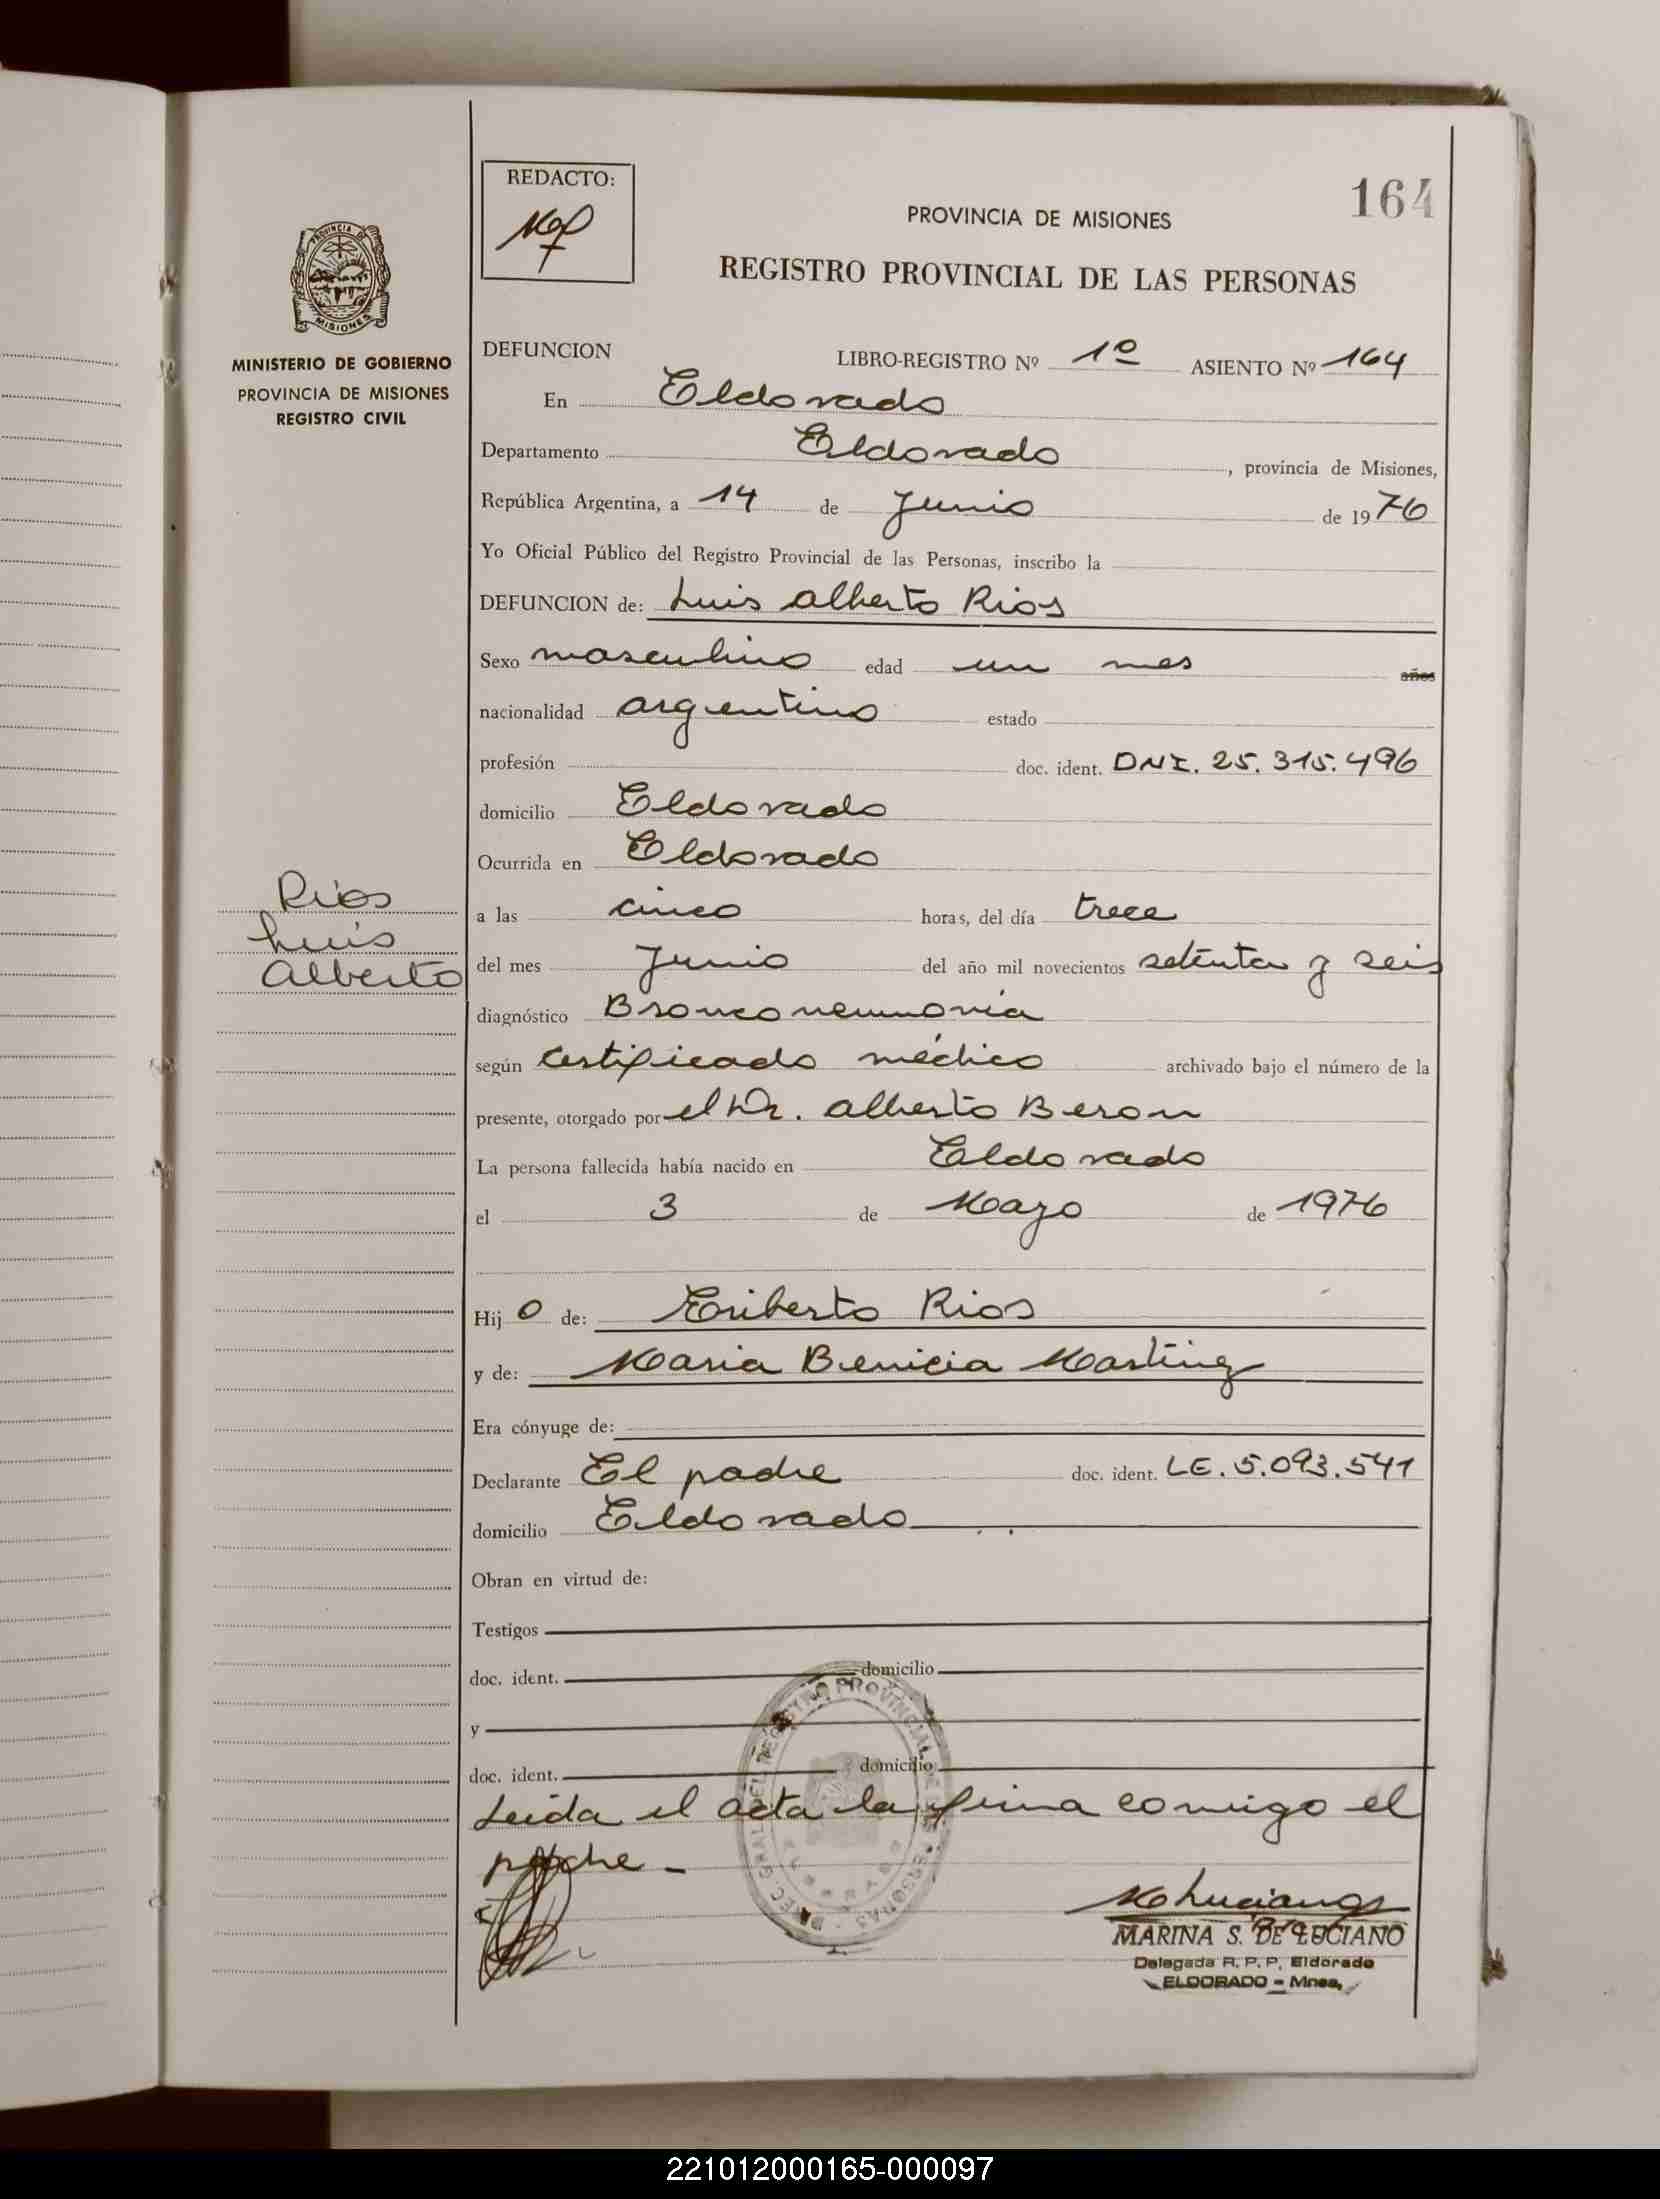 REDACTO:
164
PROVINCIA DE MISIONES
REGISTRO PROVINCIAL DE LAS PERSONAS
PROVINCIA DE
MISIONES
MINISTERIO DE GOBIERNO
PROVINCIA DE MISIONES
REGISTRO CIVIL
DEFUNCION LIBRO-REGISTRO Nº 1º ASIENTO Nº 164
En Eldorado
Departamento Eldorado, provincia de Misiones,
República Argentina, a 14 de Junio de 1976
Yo Oficial Público del Registro Provincial de las Personas, inscribo la
DEFUNCION de: Luis Alberto Rios
Sexo masculino edad un mes años
nacionalidad argentino estado
profesión doc. ident. DNI. 25.315.496
domicilio Eldorado
Ocurrida en Eldorado
Rios
Luis
Alberto
a las cinco horas, del día trece
del mes Junio del año mil novecientos setenta y seis
diagnóstico Bronconeumonia
según certificado médico archivado bajo el número de la
presente, otorgado por el Dr. Alberto Beron
La persona fallecida había nacido en Eldorado
el 3 de Mayo de 1976
Hijo de: Eriberto Rios
y de: Maria Benicia Martinez
Era cónyuge de:
Declarante El padre doc. ident. LE. 5.093.541
domicilio Eldorado
Obran en virtud de:
Testigos
doc. ident. domicilio
y
doc. ident. domicilio
Leida el acta la firma conmigo el
padre -
MARINA S. DE LUCIANO
Delegada R. P. P. Eldorado
ELDORADO - Mnes.
221012000165-000097